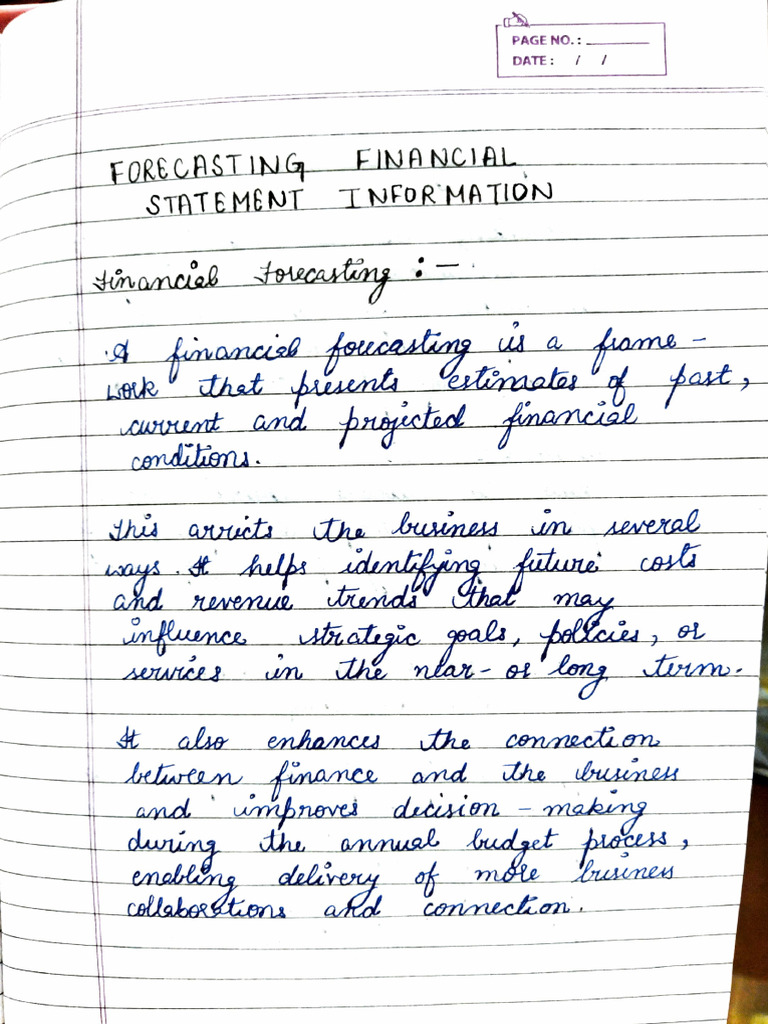 PAGE NO. :
DATE : / /
FORECASTING FINANCIAL
STATEMENT INFORMATION
Financial Forecasting :-
A financial forecasting is a frame-
work that presents estimates of past,
current and projected financial
conditions.
This arricts the business in several
ways. It helps identifying future costs
and revenue trends that may
influence strategic goals, policies, or
services in the near- or long term.
It also enhances the connection
between finance and the business
and improves decision - making
during the annual budget process,
enabling delivery of more business
collaborations and connection.